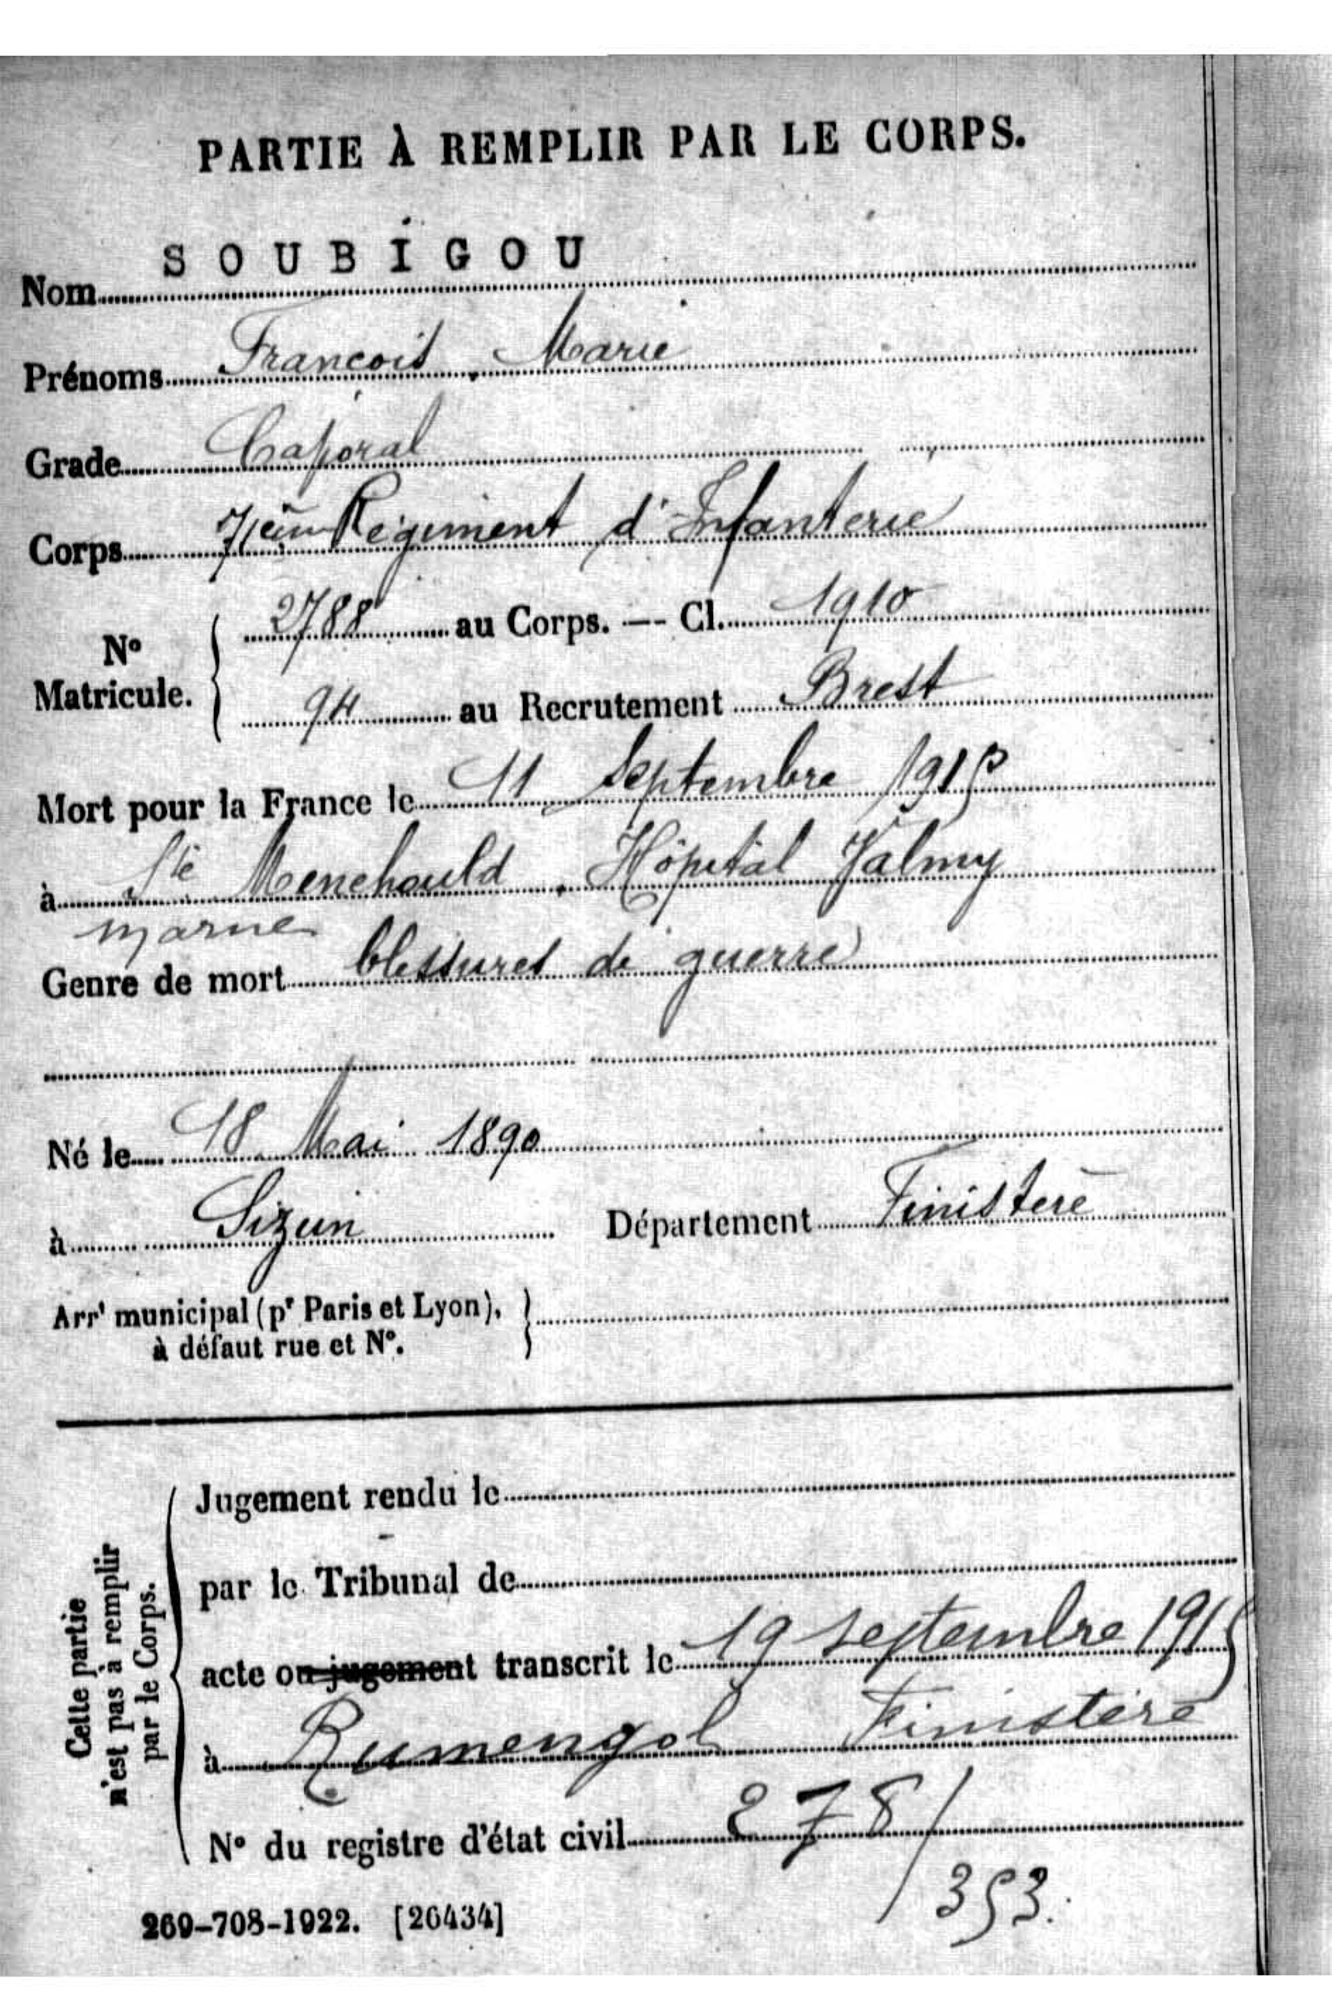 PARTIE À REMPLIR PAR LE CORPS.
Nom SOUBIGOU
Prénoms François, Marie
Grade Caporal
Corps 71ème Régiment d'Infanterie
No Matricule. { 2788 au Corps. — Cl. 1910
94 au Recrutement Brest
Mort pour la France le 11 Septembre 1915
à Ste Menehould, Hôpital Valmy
marne
Genre de mort blessures de guerre
Né le 18 Mai 1890
à Sizun Département Finistère
Arrt municipal (pr Paris et Lyon), }
à défaut rue et N°.
Cette partie
n'est pas à remplir
par le Corps.
Jugement rendu le
par le Tribunal de
acte ou jugement transcrit le 19 septembre 1915
à Rumengol Finistère
N° du registre d'état civil 278/
353.
269-708-1922. [26434]